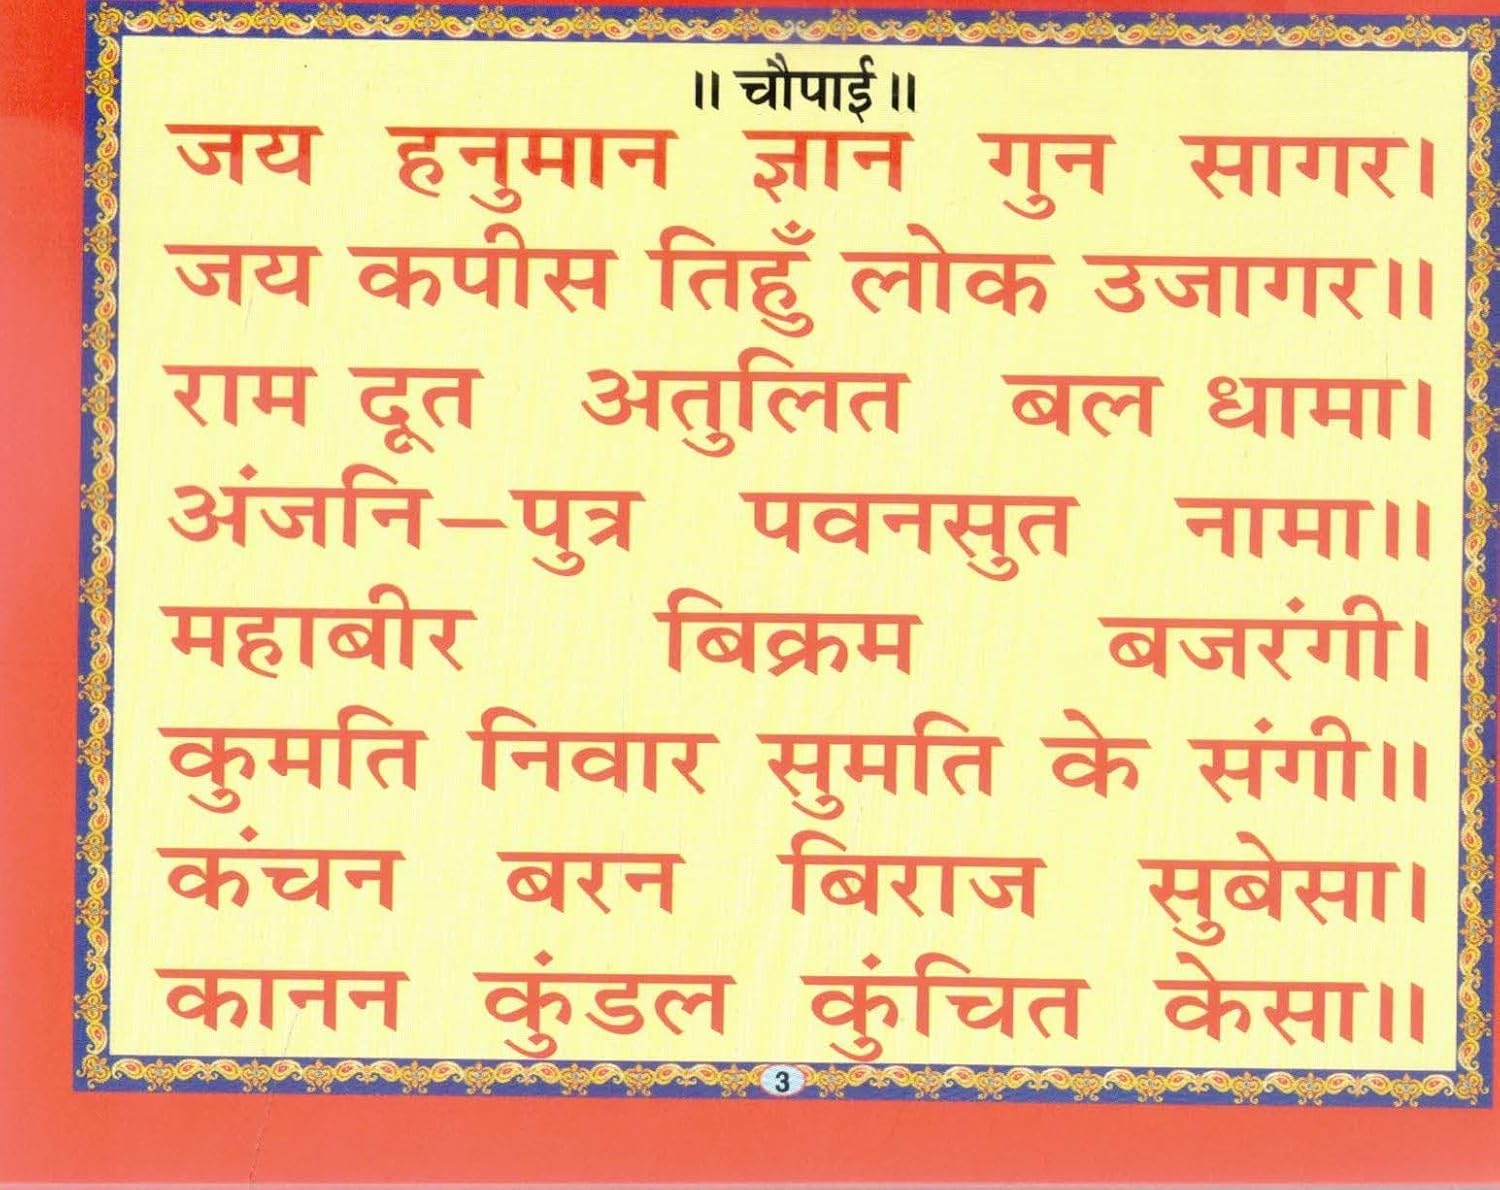 ॥ चौपाई ॥
जय हनुमान ज्ञान गुन सागर।
जय कपीस तिहुँ लोक उजागर॥
राम दूत अतुलित बल धामा।
अंजनि-पुत्र पवनसुत नामा॥
महाबीर बिक्रम बजरंगी।
कुमति निवार सुमति के संगी॥
कंचन बरन बिराज सुबेसा।
कानन कुंडल कुंचित केसा॥
3